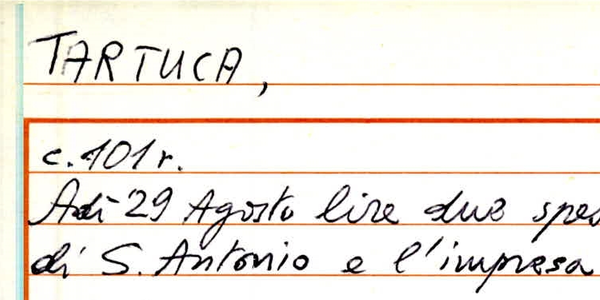 TARTUCA,
c. 101 r.
Adì 29 Agosto lire due spes
di S. Antonio e l'impresa